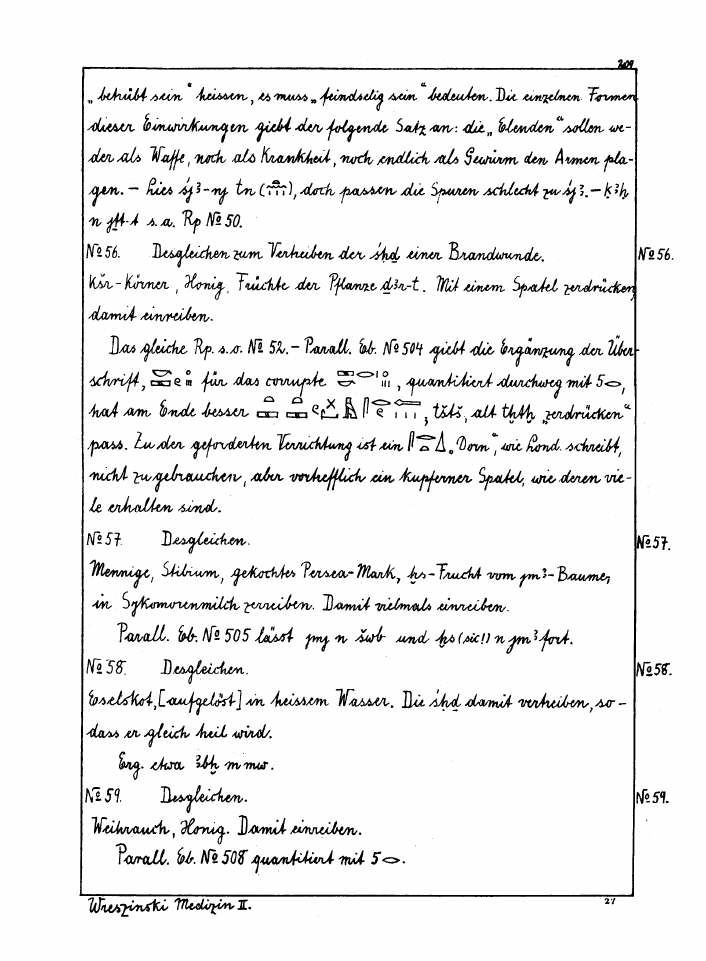 209
„betrübt sein" heissen, es muss „feindselig sein" bedeuten. Die einzelnen Formen
dieser Einwirkungen giebt der folgende Satz an: die „Elenden" sollen we-
der als Waffe, noch als Krankheit, noch endlich als Gewürm den Armen pla-
gen. – Lies śꜣ-nj tn (), doch passen die Spuren schlecht zu śjꜣ. – ḳꜣḥ
n s.a. Rp № 50.
№ 56. Desgleichen zum Vertreiben der śḥḏ einer Brandwunde. № 56.
Kśr-Körner, Honig, Früchte der Pflanze ḏꜣr-t. Mit einem Spatel zerdrücken,
damit einreiben.
Das gleiche Rp. s.o. № 52. – Parall. Eb. № 504 giebt die Ergänzung der Über-
schrift, für das corrupte , quantitiert durchweg mit 5,
hat am Ende besser , tštš, alt tḫtḫ „zerdrücken"
pass. Zu der geforderten Verrichtung ist ein „Dorn", wie Lond. schreibt,
nicht zu gebrauchen, aber vortrefflich ein kupferner Spatel, wie deren vie-
le erhalten sind.
№ 57. Desgleichen. № 57.
Mennige, Stibium, gekochtes Persea-Mark, ḫs-Frucht vom jmꜣ-Baume,
in Sykomorenmilch zerreiben. Damit vielmals einreiben.
Parall. Eb. № 505 lässt jmj n šwb und ḫs (sic!) n jmꜣ fort.
№ 58. Desgleichen. № 58.
Eselskot, [aufgelöst] in heissem Wasser. Die śḥḏ damit vertreiben, so-
dass er gleich heil wird.
Erg. etwa ꜣbḫ m mw.
№ 59. Desgleichen. № 59.
Weihrauch, Honig. Damit einreiben.
Parall. Eb. № 508 quantitiert mit 5.
Wreszinski Medizin II.
27